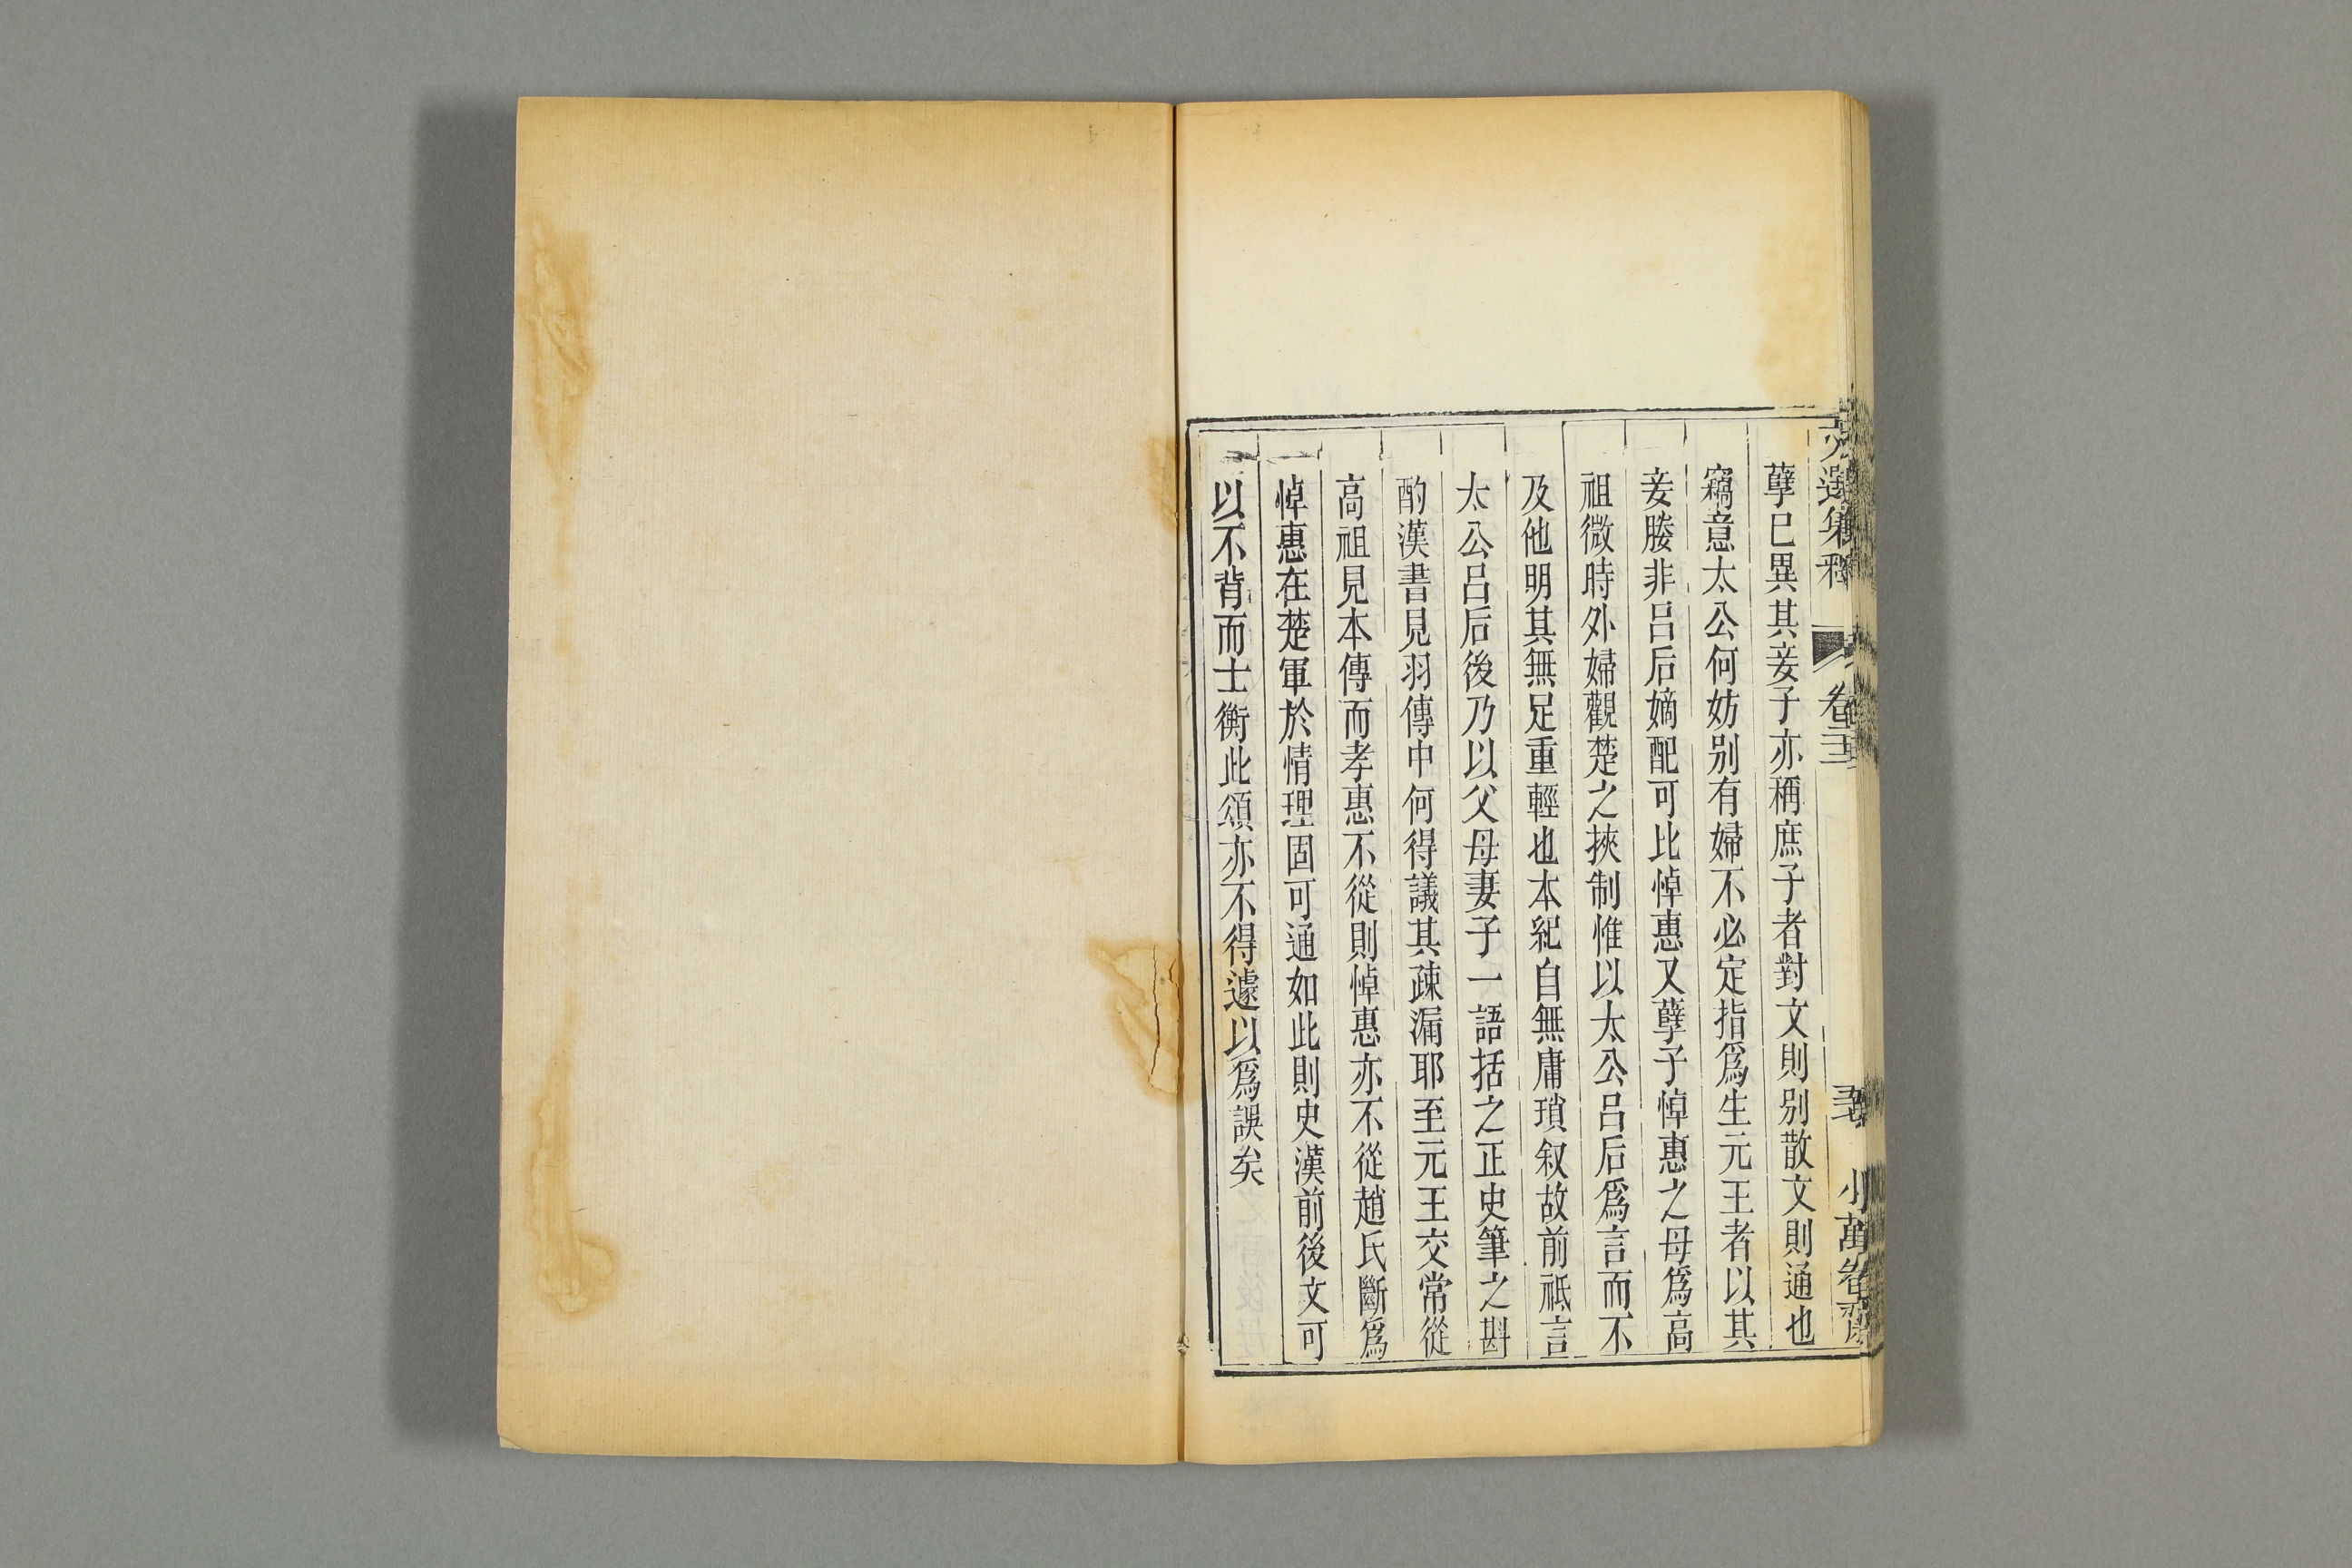 文選集釋
卷二十三
小萬卷齋
孽巳異其妾子亦稱庶子者對文則别散文則通也
竊意太公何妨别有婦不必定指爲生元王者以其
妾媵非呂后嫡配可比悼惠又孽子悼惠之母爲高
祖微時外婦觀楚之挾制惟以太公呂后爲言而不
及他明其無足重輕也本紀自無庸瑣叙故前祗言
太公呂后後乃以父母妻子一語括之正史筆之斟
酌漢書見羽傳中何得議其疎漏耶至元王交常從
高祖見本傳而孝惠不從則悼惠亦不從趙氏斷爲
悼惠在楚軍於情理固可通如此則史漢前後文可
以不背而士衡此頌亦不得遽以爲誤矣